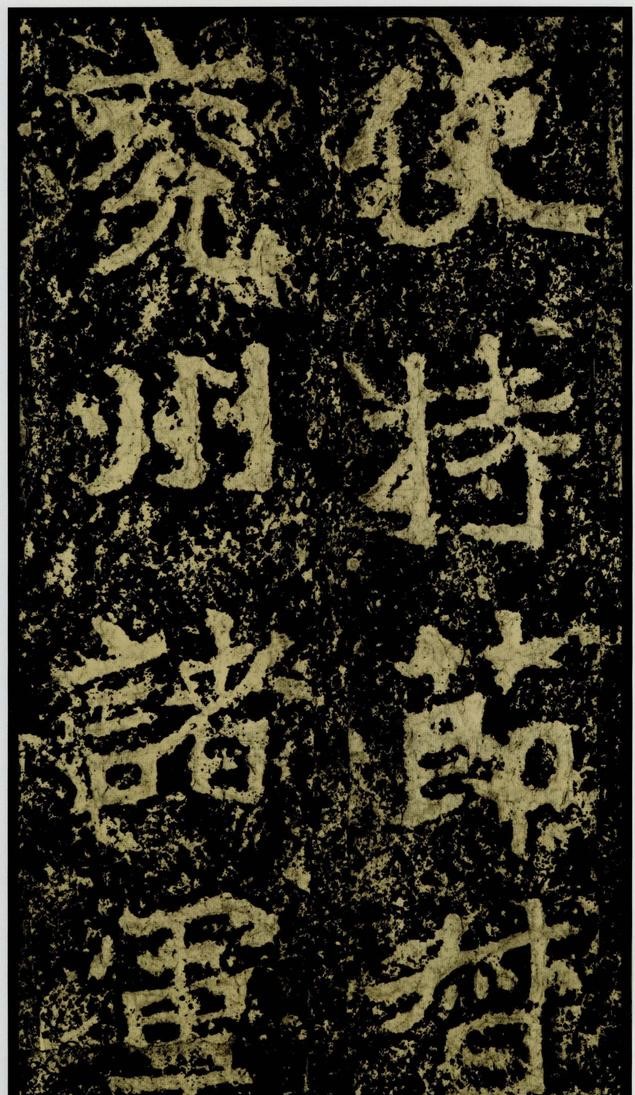 使持節督
兗州諸軍